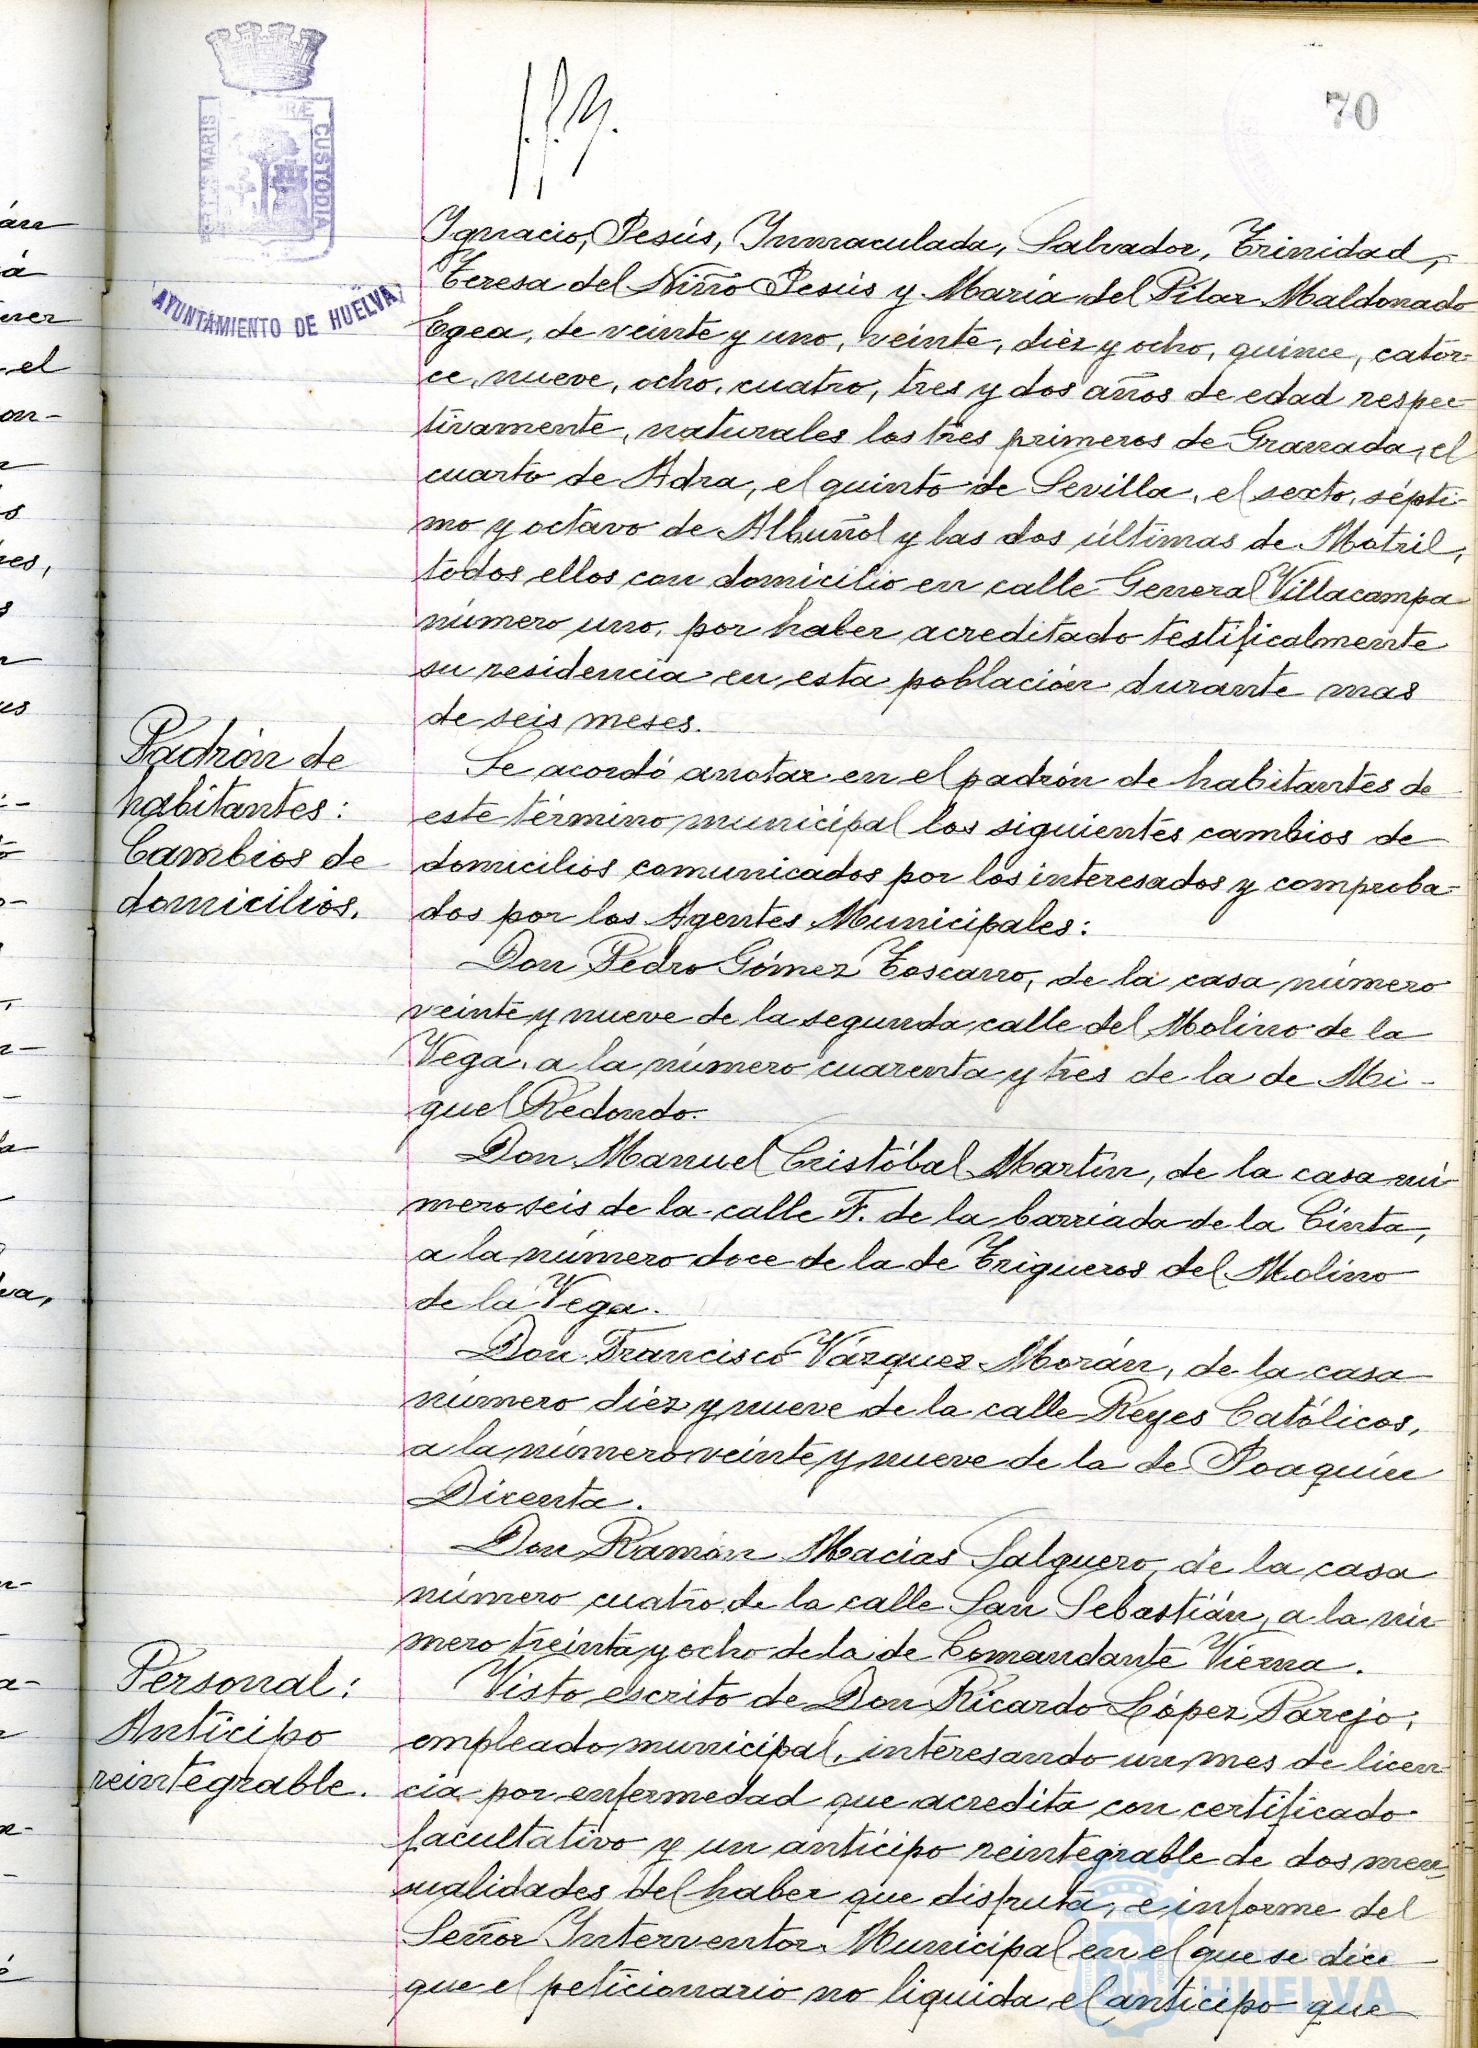 70
PORTUS MARIS
CUSTODIA
AYUNTAMIENTO DE HUELVA
Ignacio, Jesús, Inmaculada, Salvador, Trinidad,
Teresa del Niño Jesús y María del Pilar Maldonado
Egea, de veinte y uno, veinte, diez y ocho, quince, cator-
ce, nueve, ocho, cuatro, tres y dos años de edad respec-
tivamente, naturales los tres primeros de Granada, el
cuarto de Adra, el quinto de Sevilla, el sexto, sépti-
mo y octavo de Albuñol y las dos últimas de Motril,
todos ellos con domicilio en calle General Villacampa
número uno, por haber acreditado testificalmente
su residencia en esta población durante mas
de seis meses.
Padrón de
habitantes:
Cambios de
domicilios.
Se acordó anotar en el padrón de habitantes de
este término municipal los siguientes cambios de
domicilios comunicados por los interesados y comproba-
dos por los Agentes Municipales:
Don Pedro Gómez Toscano, de la casa número
veinte y nueve de la segunda calle del Molino de la
Vega, a la número cuarenta y tres de la de Mi-
guel Redondo.
Don Manuel Cristóbal Martín, de la casa nú-
mero seis de la calle F. de la barriada de la Cinta,
a la número doce de la de Trigueros del Molino
de la Vega.
Don Francisco Vázquez Morán, de la casa
número diéz y nueve de la calle Reyes Católicos,
a la número veinte y nueve de la de Joaquín
Dicenta.
Don Ramón Macias Salguero, de la casa
número cuatro de la calle San Sebastián, a la nú-
mero treinta y ocho de la de Comandante Vierna.
Personal:
Anticipo
reintegrable.
Visto escrito de Don Ricardo López Parejo,
empleado municipal, interesando un mes de licen-
cia por enfermedad que acredita con certificado
facultativo y un anticipo reintegrable de dos men-
sualidades del haber que disfruta, e informe del
Señor Interventor Municipal en el que se dice
que el peticionario no liquida el anticipo que
HUELVA